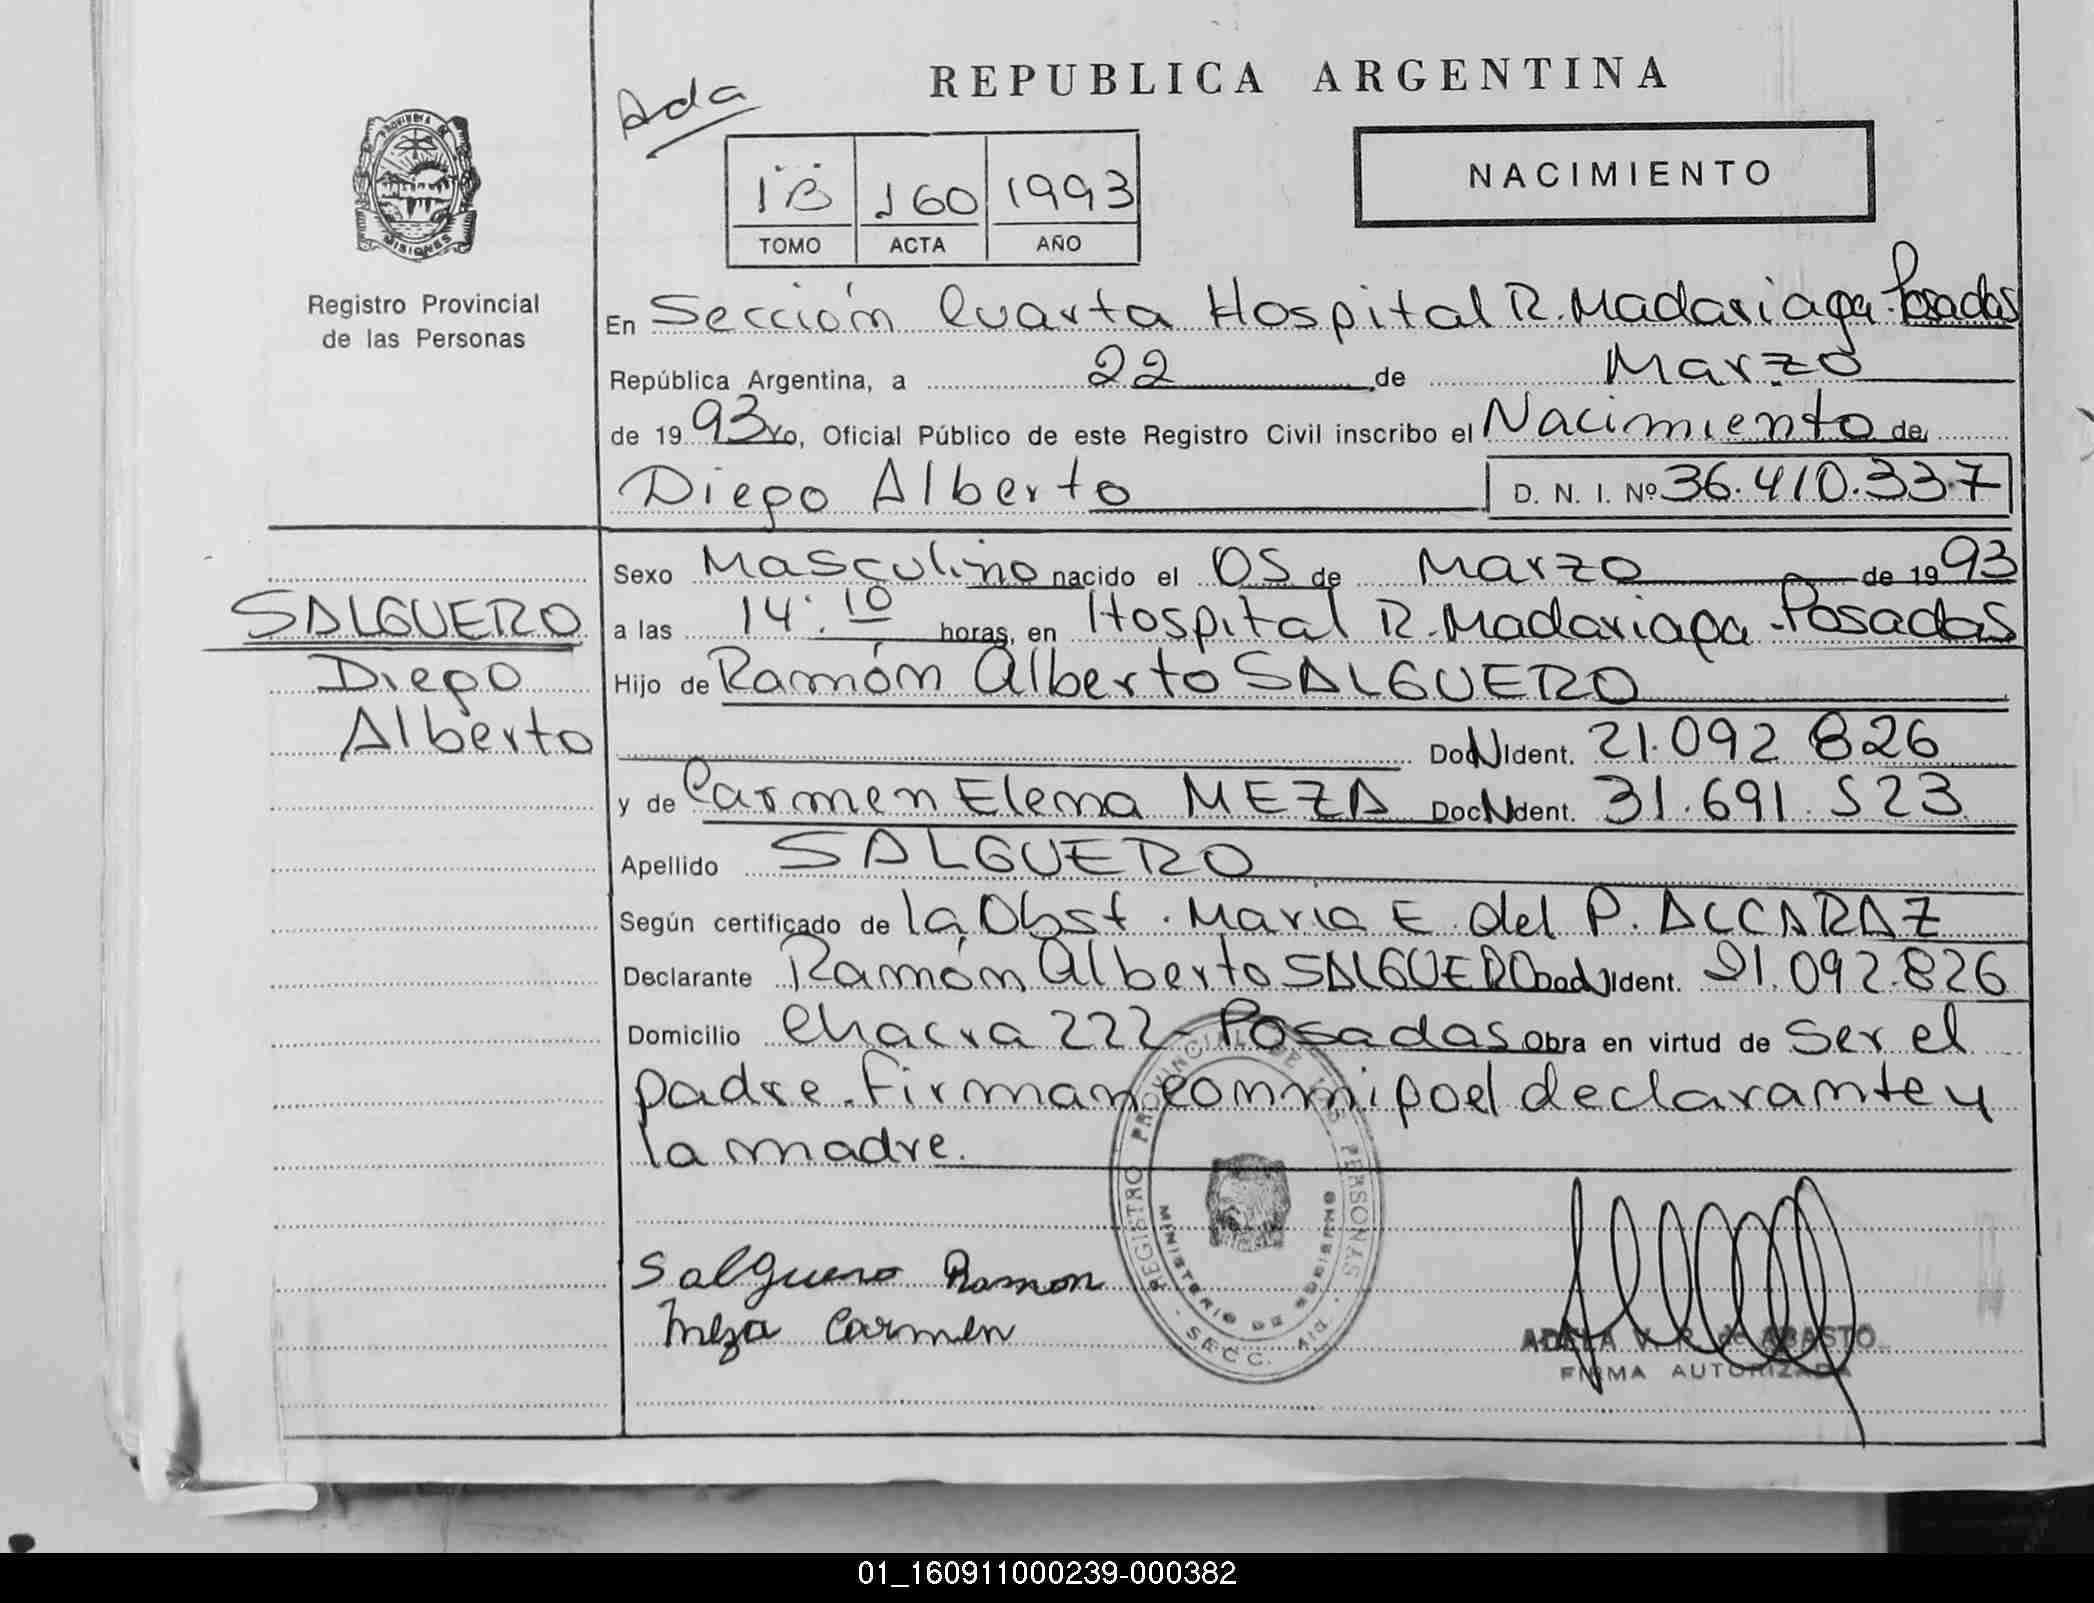 REPUBLICA ARGENTINA
Ada
NACIMIENTO
1B 160 1993
TOMO ACTA AÑO
PROVINCIA DE
MISIONES
Registro Provincial
de las Personas
En Sección Cuarta Hospital R. Madariaga - Posadas
República Argentina, a 22 de Marzo
de 1993 Yo, Oficial Público de este Registro Civil inscribo el Nacimiento de
Diego Alberto D. N. I. Nº 36.410.337
Sexo Masculino nacido el 05 de Marzo de 1993
SALGUERO
Diego
Alberto
a las 14:10 horas, en Hospital R. Madariaga - Posadas
Hijo de Ramón Alberto SALGUERO
Doc N Ident. 21.092 826
y de Carmen Elena MEZA Doc N Ident. 31.691.523
Apellido SALGUERO
Según certificado de la Obst. Maria E. del P. ALCARAZ
Declarante Ramón Alberto SALGUERO Doc N Ident. 21.092.826
Domicilio Chacra 222 - Posadas Obra en virtud de Ser el
padre. Firman conmigo el declarante y
la madre.
REGISTRO PROVINCIAL DE LAS PERSONAS
MINISTERIO DE GOBIERNO
SECC. 4ta.
Salguero Ramon
Meza Carmen
ADELA V. R. de ABASTO
FIRMA AUTORIZADA
01_160911000239-000382